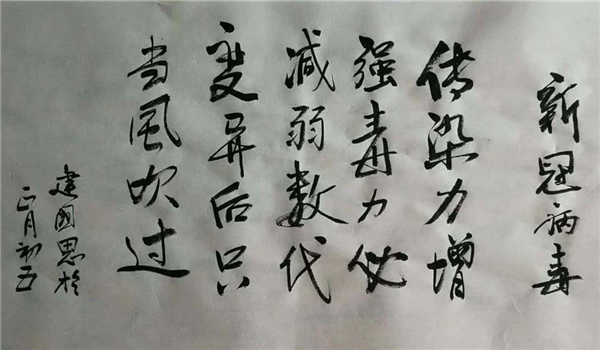 新冠病毒
传染力增
强毒力必
减弱数代
变异后只
当风吹过
建国思于
正月初五